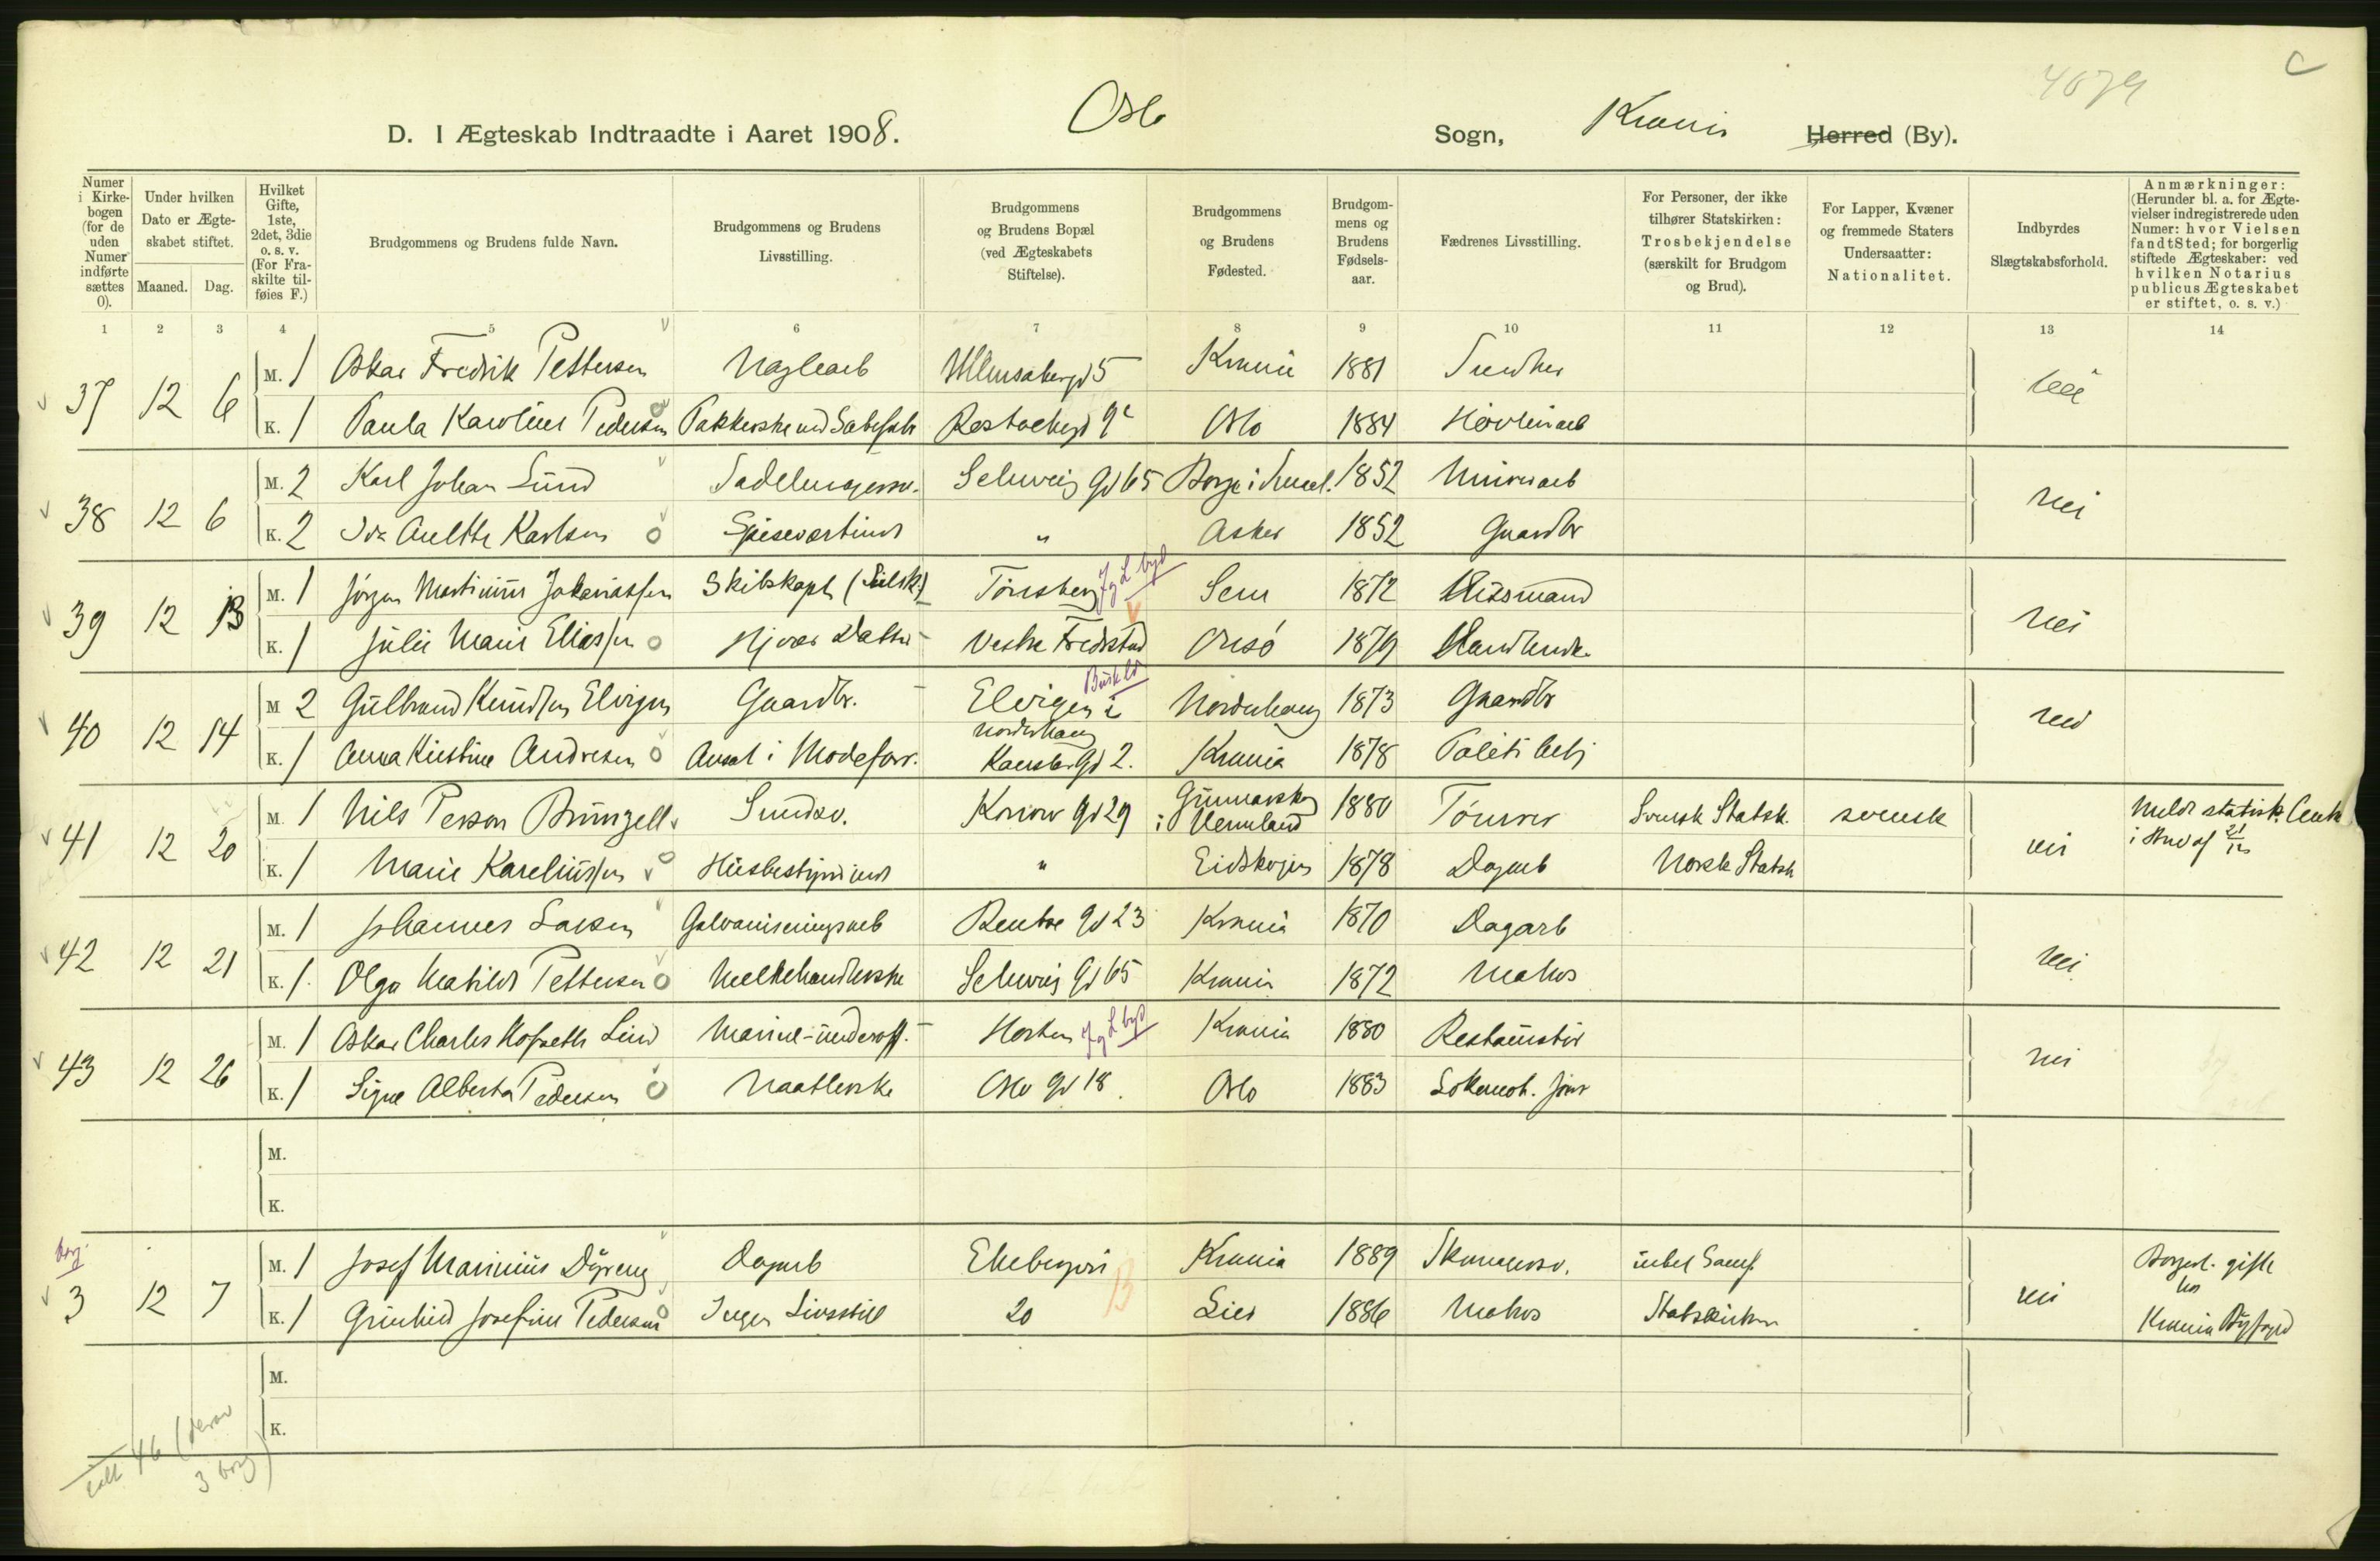 C
4079
D. I Ægteskab Indtraadte i Aaret 1908. Oslo Sogn, Krania Herred (By).
Numer i Kirkebogen (for de uden Numer indførte sættes 0).
Under hvilken Dato er Ægteskabet stiftet.
Maaned. Dag.
Hvilket Gifte, 1ste, 2det, 3die o. s. v. (For Fraskilte tilføies F.)
Brudgommens og Brudens fulde Navn.
Brudgommens og Brudens Livsstilling.
Brudgommens og Brudens Bopæl (ved Ægteskabets Stiftelse).
Brudgommens og Brudens Fødested.
Brudgommens og Brudens Fødselsaar.
Fædrenes Livsstilling.
For Personer, der ikke tilhører Statskirken: Trosbekjendelse (særskilt for Brudgom og Brud).
For Lapper, Kvæner og fremmede Staters Undersaatter: Nationalitet.
Indbyrdes Slægtskabsforhold.
Anmærkninger: (Herunder bl. a. for Ægtevielser indregistrerede uden Numer: hvor Vielsen fandt Sted; for borgerlig stiftede Ægteskaber: ved hvilken Notarius publicus Ægteskabet er stiftet, o. s. v.)
1 2 3 4 5 6 7 8 9 10 11 12 13 14
37 12 6 M. 1 Oskar Fredrik Pettersen Naglearb 5 Krania 1881 nei
K. 1 Paula Karoline Pedersen 9c Oslo 1884 Høvleriarb
38 12 6 M. 2 Karl Johan Lund Sadelmagersv. Schweig Gd 65 Borge i Smaal. 1852 Murerarb nei
K. 2 Ida Anette Karlsen Spiseværtinde " Asker 1852 Gaardbr
39 12 13 M. 1 Jørgen Martinius Jakariassen Skibskapt (Seilsk.) Tønsberg Jg L byd Sem 1872 Husmand nei
K. 1 Julie Marie Eliassen Hjver Datter Vestre Fredrikstad Onsø 1879 Handlende
40 12 14 M 2 Gulbrand Knudsen Elvigen Gaardbr. Elvigen i Norderhaug Buskd Norderhaug 1873 Gaardbr nei
K. 1 Anna Kirstine Andresen Ansat i Modeforr. Gd 2. Krania 1878 Politibetj
41 12 20 M. 1 Nils Person Brunzell Smedsv. Gd 29 Gunnarskog i Vermland 1880 Tømrer Svensk Statsk. svensk nei Meldt statistk. Centr
K. 1 Marie Kareliussen Husbestyrerinde " Eidskogen 1878 Dagarb Norsk Statsk
42 12 21 M. 1 Johannes Larsen Galvaniseringsarb Gd 23 Krania 1870 Dagarb nei
K. 1 Olga Matilde Pettersen Melkehandlerske Schweig Gd 65 Krania 1872 Matros
43 12 26 M. 1 Oskar Charles Hofseth Lind Marine-underoff. Horten Jg L byd Krania 1880 Restauratør nei
K. 1 Signe Alberta Pedersen Naatlerske Oslo Gd 18 Oslo 1883 Lokomot. fører
M.
K.
borg.
3 12 7 M. 1 Josef Marinius Dyreng Dagarb Ekebergvei B Krania 1889 Skomagersv. nei Borgerl. gifte hos Krania Byfoged
K. 1 Josefine Pedersen Ingen Livsstill 20 Lier 1886 Matros Statskirken
M.
K.
ialt 46 (derav 3 borg)